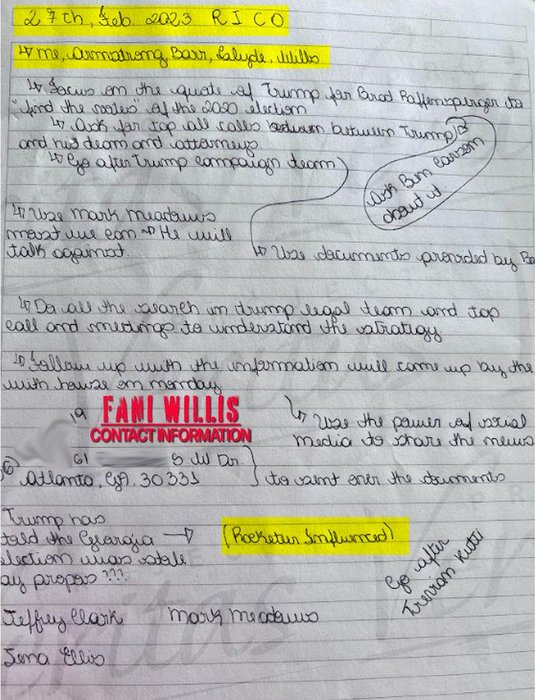 27th, Feb. 2023 RICO
↳ me, Armstrong Barr, Calyde, Wills
↳ Focus on the quote of Trump for Brad Raffensperger to
"find the votes" of the 2020 election
↳ Ask for top all calls between between Trump
and his team and attorneys
↳ Go after Trump campaign team
Ask Ben
about it
↳ Use mark meadows
most we can → He will
talk against.
↳ Use documents provided by
↳ Do all the search in trump legal team and top
call and meetings to understand the stratigy
↳ Follow up with the information will come up by the
with house on monday
19 FANI WILLIS
CONTACT INFORMATION
↳ Use the power of social
media to share the news
61 S.W Dr.
Atlanta, GA. 30331
to sent over the documents
Trump has
told the Georgia → (Rocketur Influenced)
election was stole
by propos ???
Go after
Trevian Kutti
Jeffrey Clark mark meadows
Jena Ellis